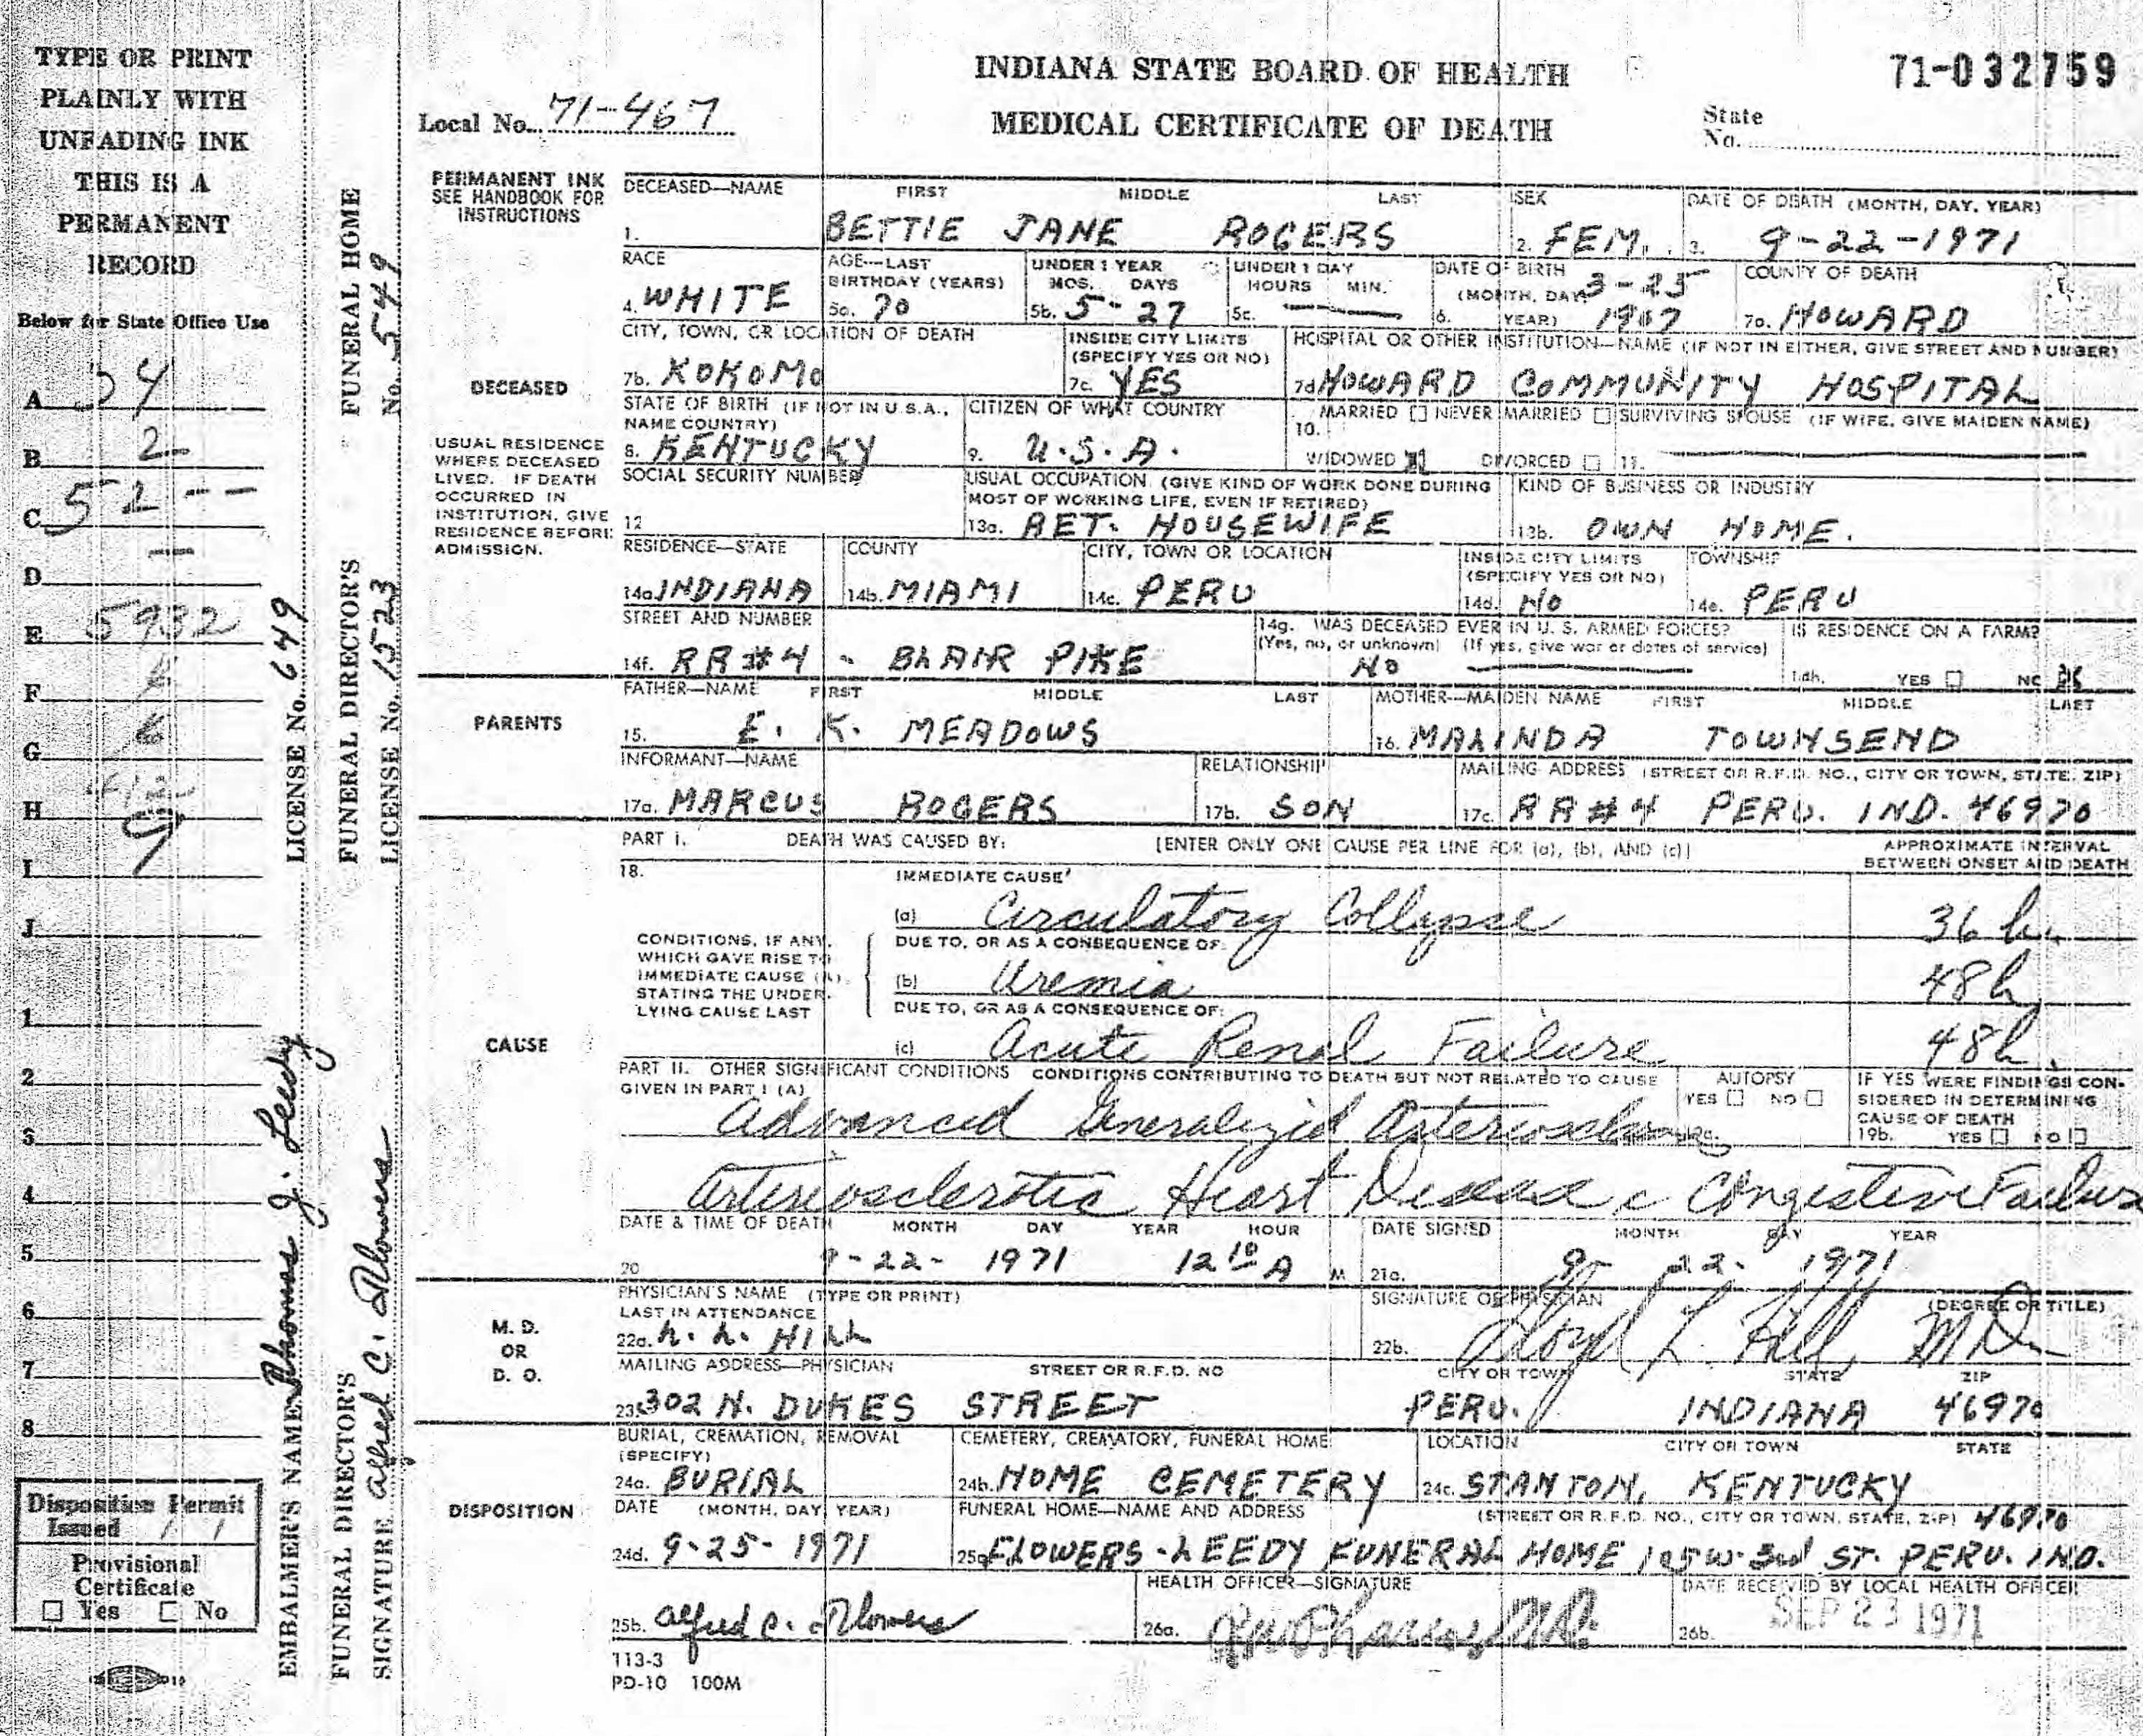 TYPE OR PRINT
PLAINLY WITH
UNFADING INK
THIS IS A
PERMANENT
RECORD
Below for State Office Use
A 34
B 2
C 52 - -
D —
E 5932
F 6
G 6
H
I 9
J
1
2
3
4
5
6
7
8
Disposition Permit
Issued / /
Provisional
Certificate
☐ Yes ☐ No
EMBALMER'S NAME Thomas J. Leedy LICENSE No. 649
FUNERAL DIRECTOR'S
SIGNATURE Alfred C. Flowers
FUNERAL DIRECTOR'S
LICENSE No. 1523
FUNERAL HOME
No. 549
INDIANA STATE BOARD OF HEALTH
71-032759
Local No. 71-467
MEDICAL CERTIFICATE OF DEATH
State
No.
PERMANENT INK
SEE HANDBOOK FOR
INSTRUCTIONS
DECEASED—NAME FIRST MIDDLE LAST SEX DATE OF DEATH (MONTH, DAY, YEAR)
1. BETTIE JANE ROGERS 2. FEM. 3. 9-22-1971
RACE AGE—LAST BIRTHDAY (YEARS) UNDER 1 YEAR MOS. DAYS UNDER 1 DAY HOURS MIN. DATE OF BIRTH (MONTH, DAY, YEAR) COUNTY OF DEATH
4. WHITE 5a. 70 5b. 5-27 5c. — 6. 3-25 7a. HOWARD
CITY, TOWN, OR LOCATION OF DEATH INSIDE CITY LIMITS (SPECIFY YES OR NO) HOSPITAL OR OTHER INSTITUTION—NAME (IF NOT IN EITHER, GIVE STREET AND NUMBER)
DECEASED
7b. KOKOMO 7c. YES 7d. HOWARD COMMUNITY HOSPITAL
STATE OF BIRTH (IF NOT IN U.S.A., NAME COUNTRY) CITIZEN OF WHAT COUNTRY 10. MARRIED ☐ NEVER MARRIED ☐ SURVIVING SPOUSE (IF WIFE, GIVE MAIDEN NAME)
8. KENTUCKY 9. U.S.A. WIDOWED ☒ DIVORCED ☐ 11. —
USUAL RESIDENCE
WHERE DECEASED
LIVED. IF DEATH
OCCURRED IN
INSTITUTION, GIVE
RESIDENCE BEFORE
ADMISSION.
SOCIAL SECURITY NUMBER USUAL OCCUPATION (GIVE KIND OF WORK DONE DURING MOST OF WORKING LIFE, EVEN IF RETIRED) KIND OF BUSINESS OR INDUSTRY
12 13a. RET. HOUSEWIFE 13b. OWN HOME.
RESIDENCE—STATE COUNTY CITY, TOWN OR LOCATION INSIDE CITY LIMITS (SPECIFY YES OR NO) TOWNSHIP
14a. INDIANA 14b. MIAMI 14c. PERU 14d. NO 14e. PERU
STREET AND NUMBER 14g. WAS DECEASED EVER IN U. S. ARMED FORCES? (Yes, no, or unknown) (If yes, give war or dates of service) IS RESIDENCE ON A FARM?
14f. RR#4 - BLAIR PIKE NO — 14h. YES ☐ NO ☒
FATHER—NAME FIRST MIDDLE LAST MOTHER—MAIDEN NAME FIRST MIDDLE LAST
PARENTS
15. E. K. MEADOWS 16. MALINDA TOWNSEND
INFORMANT—NAME RELATIONSHIP MAILING ADDRESS (STREET OR R.F.D. NO., CITY OR TOWN, STATE, ZIP)
17a. MARCUS ROGERS 17b. SON 17c. RR#4 PERU. IND. 46970
PART I. DEATH WAS CAUSED BY: [ENTER ONLY ONE CAUSE PER LINE FOR (a), (b), AND (c)] APPROXIMATE INTERVAL BETWEEN ONSET AND DEATH
18. IMMEDIATE CAUSE
(a) Circulatory Collapse 36 h.
CONDITIONS, IF ANY,
WHICH GAVE RISE TO
IMMEDIATE CAUSE (A),
STATING THE UNDER-
LYING CAUSE LAST
DUE TO, OR AS A CONSEQUENCE OF:
(b) Uremia 48h
DUE TO, OR AS A CONSEQUENCE OF:
CAUSE
(c) Acute Renal Failure 48h.
PART II. OTHER SIGNIFICANT CONDITIONS CONDITIONS CONTRIBUTING TO DEATH BUT NOT RELATED TO CAUSE GIVEN IN PART I (A) AUTOPSY YES ☐ NO ☐ IF YES WERE FINDINGS CONSIDERED IN DETERMINING CAUSE OF DEATH
19b. YES ☐ NO ☐
Advanced Generalized
Arteriosclerotic Heart Disease c Congestive Failure
DATE & TIME OF DEATH MONTH DAY YEAR HOUR DATE SIGNED MONTH DAY YEAR
20 9-22- 1971 12 10 A M 21a. 9 22- 1971
PHYSICIAN'S NAME (TYPE OR PRINT) SIGNATURE OF PHYSICIAN (DEGREE OR TITLE)
LAST IN ATTENDANCE
M. D.
OR
D. O.
22a. L. L. HILL 22b. Lloyd L. Hill MD
MAILING ADDRESS—PHYSICIAN STREET OR R.F.D. NO CITY OR TOWN STATE ZIP
23. 302 N. DUKES STREET PERU. INDIANA 46970
BURIAL, CREMATION, REMOVAL (SPECIFY) CEMETERY, CREMATORY, FUNERAL HOME LOCATION CITY OR TOWN STATE
24a. BURIAL 24b. HOME CEMETERY 24c. STANTON, KENTUCKY
DISPOSITION
DATE (MONTH, DAY, YEAR) FUNERAL HOME—NAME AND ADDRESS (STREET OR R.F.D. NO., CITY OR TOWN, STATE, ZIP) 46970
24d. 9-25-1971 25a. FLOWERS-LEEDY FUNERAL HOME 105 W. 3rd ST. PERU. IND.
HEALTH OFFICER—SIGNATURE DATE RECEIVED BY LOCAL HEALTH OFFICER
25b. Alfred C. Flowers 26a. 26b. SEP 23 1971
113-3
PD-10 100M